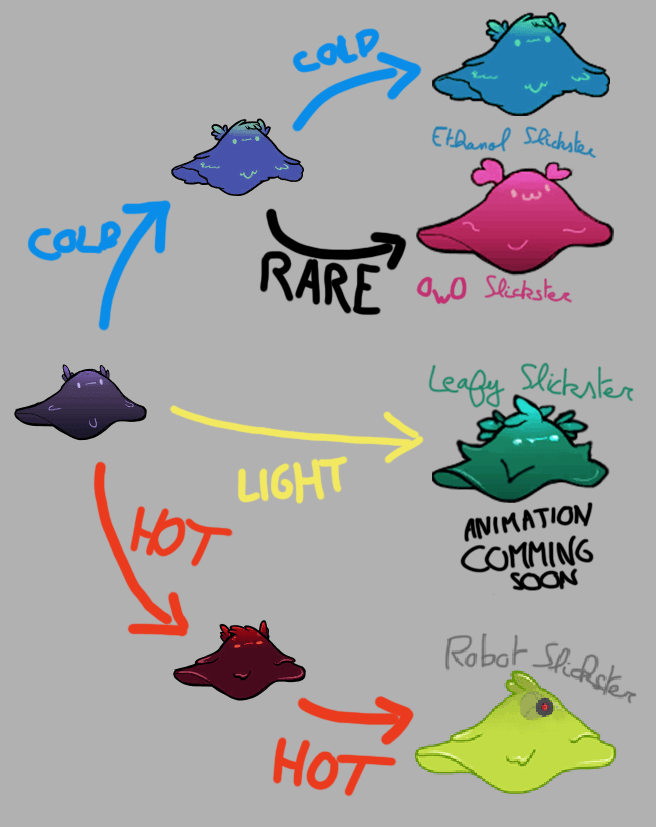 COLD
Ethanol Slickster
COLD
RARE
OwO Slickster
Leafy Slickster
LIGHT
ANIMATION
COMMING
SOON
HOT
Robot Slickster
HOT